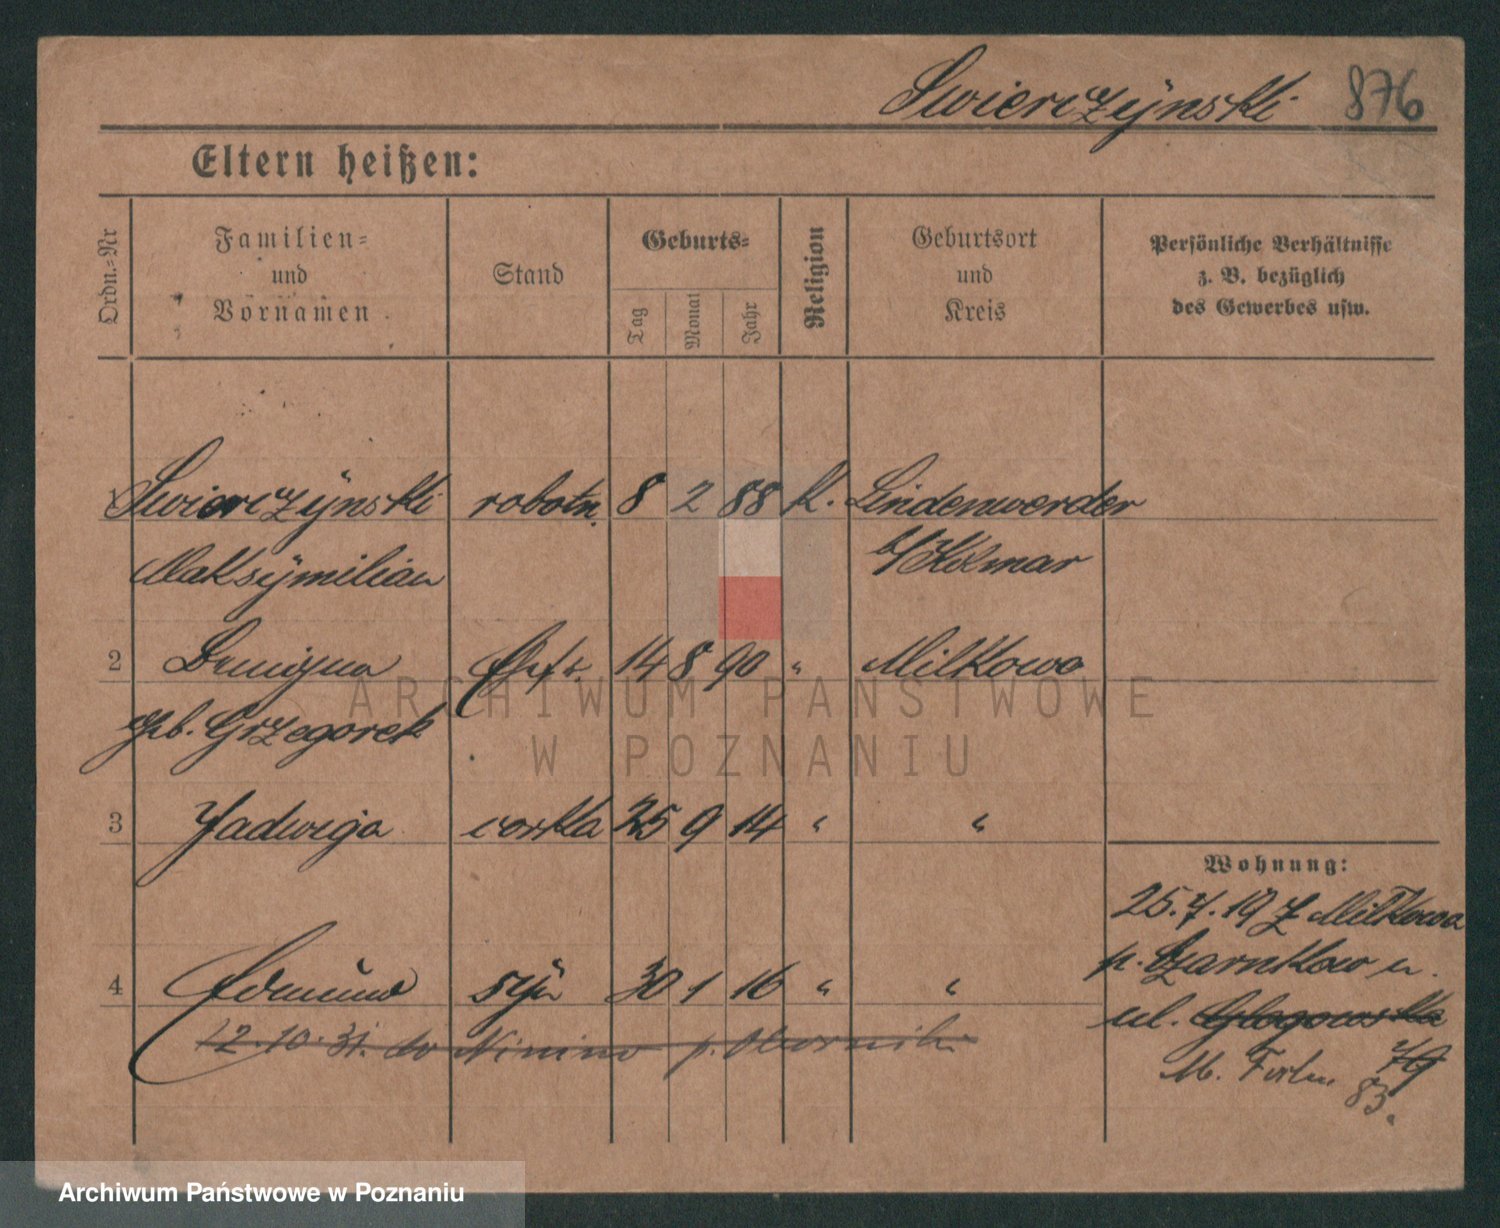 Swierczÿnski 876
Eltern heißen:
Ordn.=Nr
Familien=
und
Vornamen
Stand
Geburts=
Tag
Monat
Jahr
Religion
Geburtsort
und
Kreis
Persönliche Verhältnisse
z. B. bezüglich
des Gewerbes usw.
1 Swierczÿnski robotn. 8 2 88 K. Lindenwerder
Maksÿmilian b/Kolmar
2 Benigna Ehefr. 14 8 90 " Milkowo
geb. Grzegorek
3 Jadwiga corka 25 9 14 " "
Wohnung:
25.7.19 z Milkowa
p. Czarnkow n.
4 Edmund syn 30 1 16 " "
ul. Glogowska
12.10.31. do Ninino p. Obornik 79
M. Focha 83.
ARCHIWUM PAŃSTWOWE
W POZNANIU
Archiwum Państwowe w Poznaniu